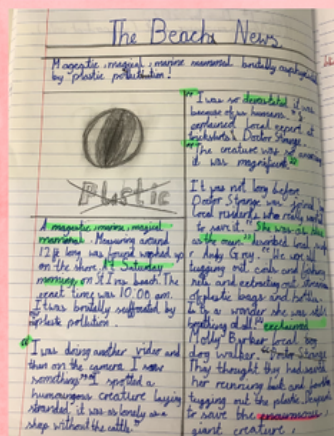 The Beach News
Magestic, magical, marine mammal brutally asphyxiated
by plastic pollution!
Plastic
A magestic, marine, magical
mammal. Measuring around
12ft long was found washed up
on the shore. At Saturday
morning, on St Ives beach. The
exact time was 10:00 am.
It was brutally suffocated by
plastic pollution.
"I was doing another video and
then on the camera I saw
something" "I spotted a
humoungous creature laying
stranded, it was as lonely as a
sheep without the cattle"
"I was so devastated it was
because of us humans."
explained local expert at
Doctor Strange.
"The creature was so amazing
it was magnificent"
It was not long before
Doctor Strange was joined by
local residents who really wanted
to save it. "She was as
as the moon" described local
Andy Grey. "We were
tugging out, cords and fishing
nets and extracting out
of plastic bags and bottles
to a wonder she was still
breathing at all." exclaimed
Molly Barker local
dog walker. Doctor Strange
They thought they had seen
her running back and forth
tugging out the plastic,
to save the enourmous
giant creature!